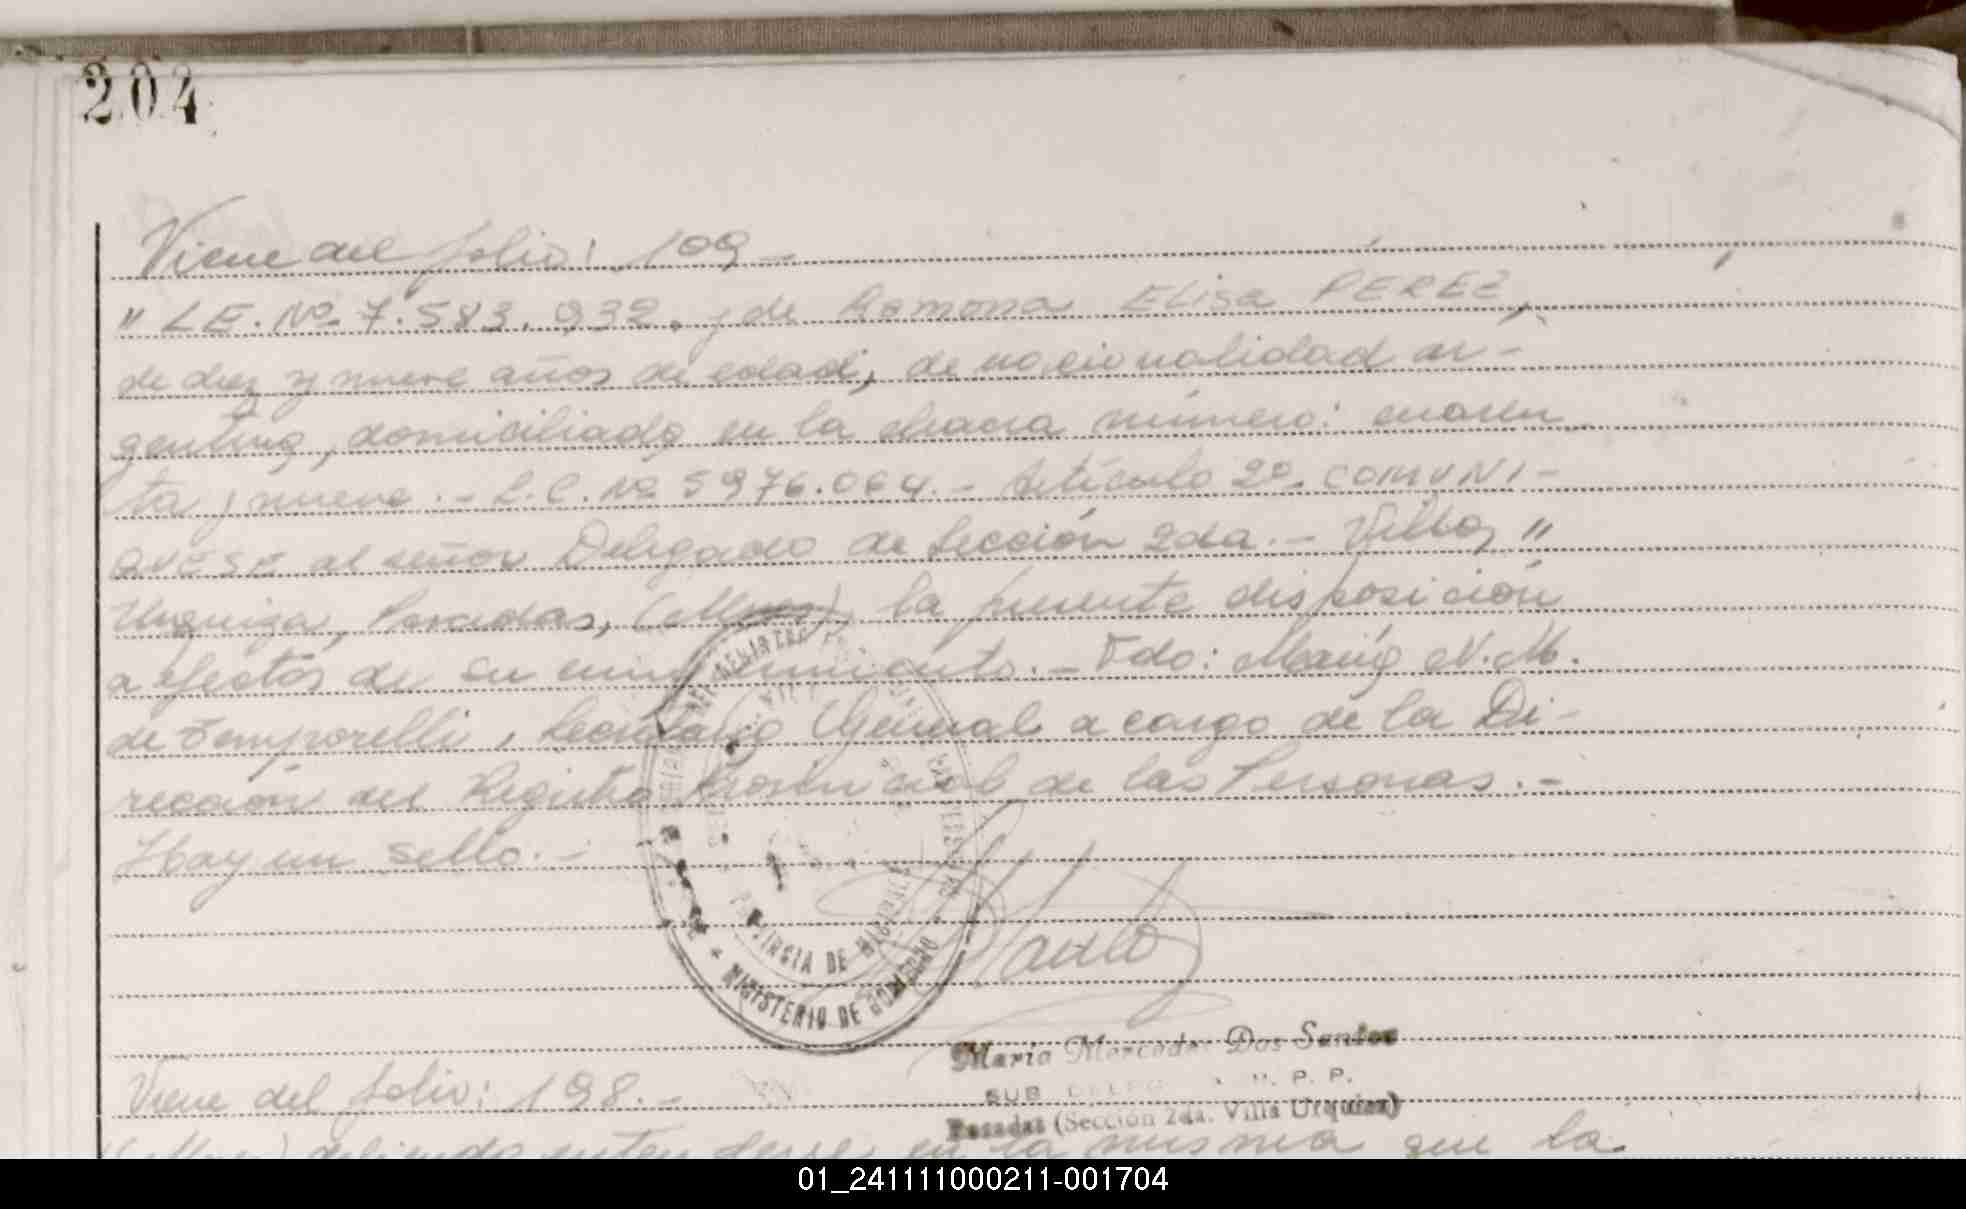 204
Viene del folio: 109 -
" L.E. Nº 7.583.932. y de Ramona Elisa PEREZ,
de diez y nueve años de edad, de nacionalidad ar-
gentina, domiciliada en la chacra número: cuaren
ta y nueve.- L.C. Nº 5976.064.- Artículo 2º. COMUNI-
QUESE al señor Delegado de Sección 2da.- Villa "
Urquiza, Posadas, (Mnes), la presente disposición
a efectos de su cumplimiento.- Fdo: María N.M.
de Temporelli, Secretario General a cargo de la Di-
rección del Registro Provincial de las Personas.-
Hay un sello.-
PROVINCIA DE MISIONES
MINISTERIO DE GOBIERNO
Maria Mercedes Dos Santos
SUB R. P. P.
Posadas (Sección 2da. Villa Urquiza)
Viene del folio: 198.-
(Mnes) debiendo entenderse en la misma que la
01_241111000211-001704